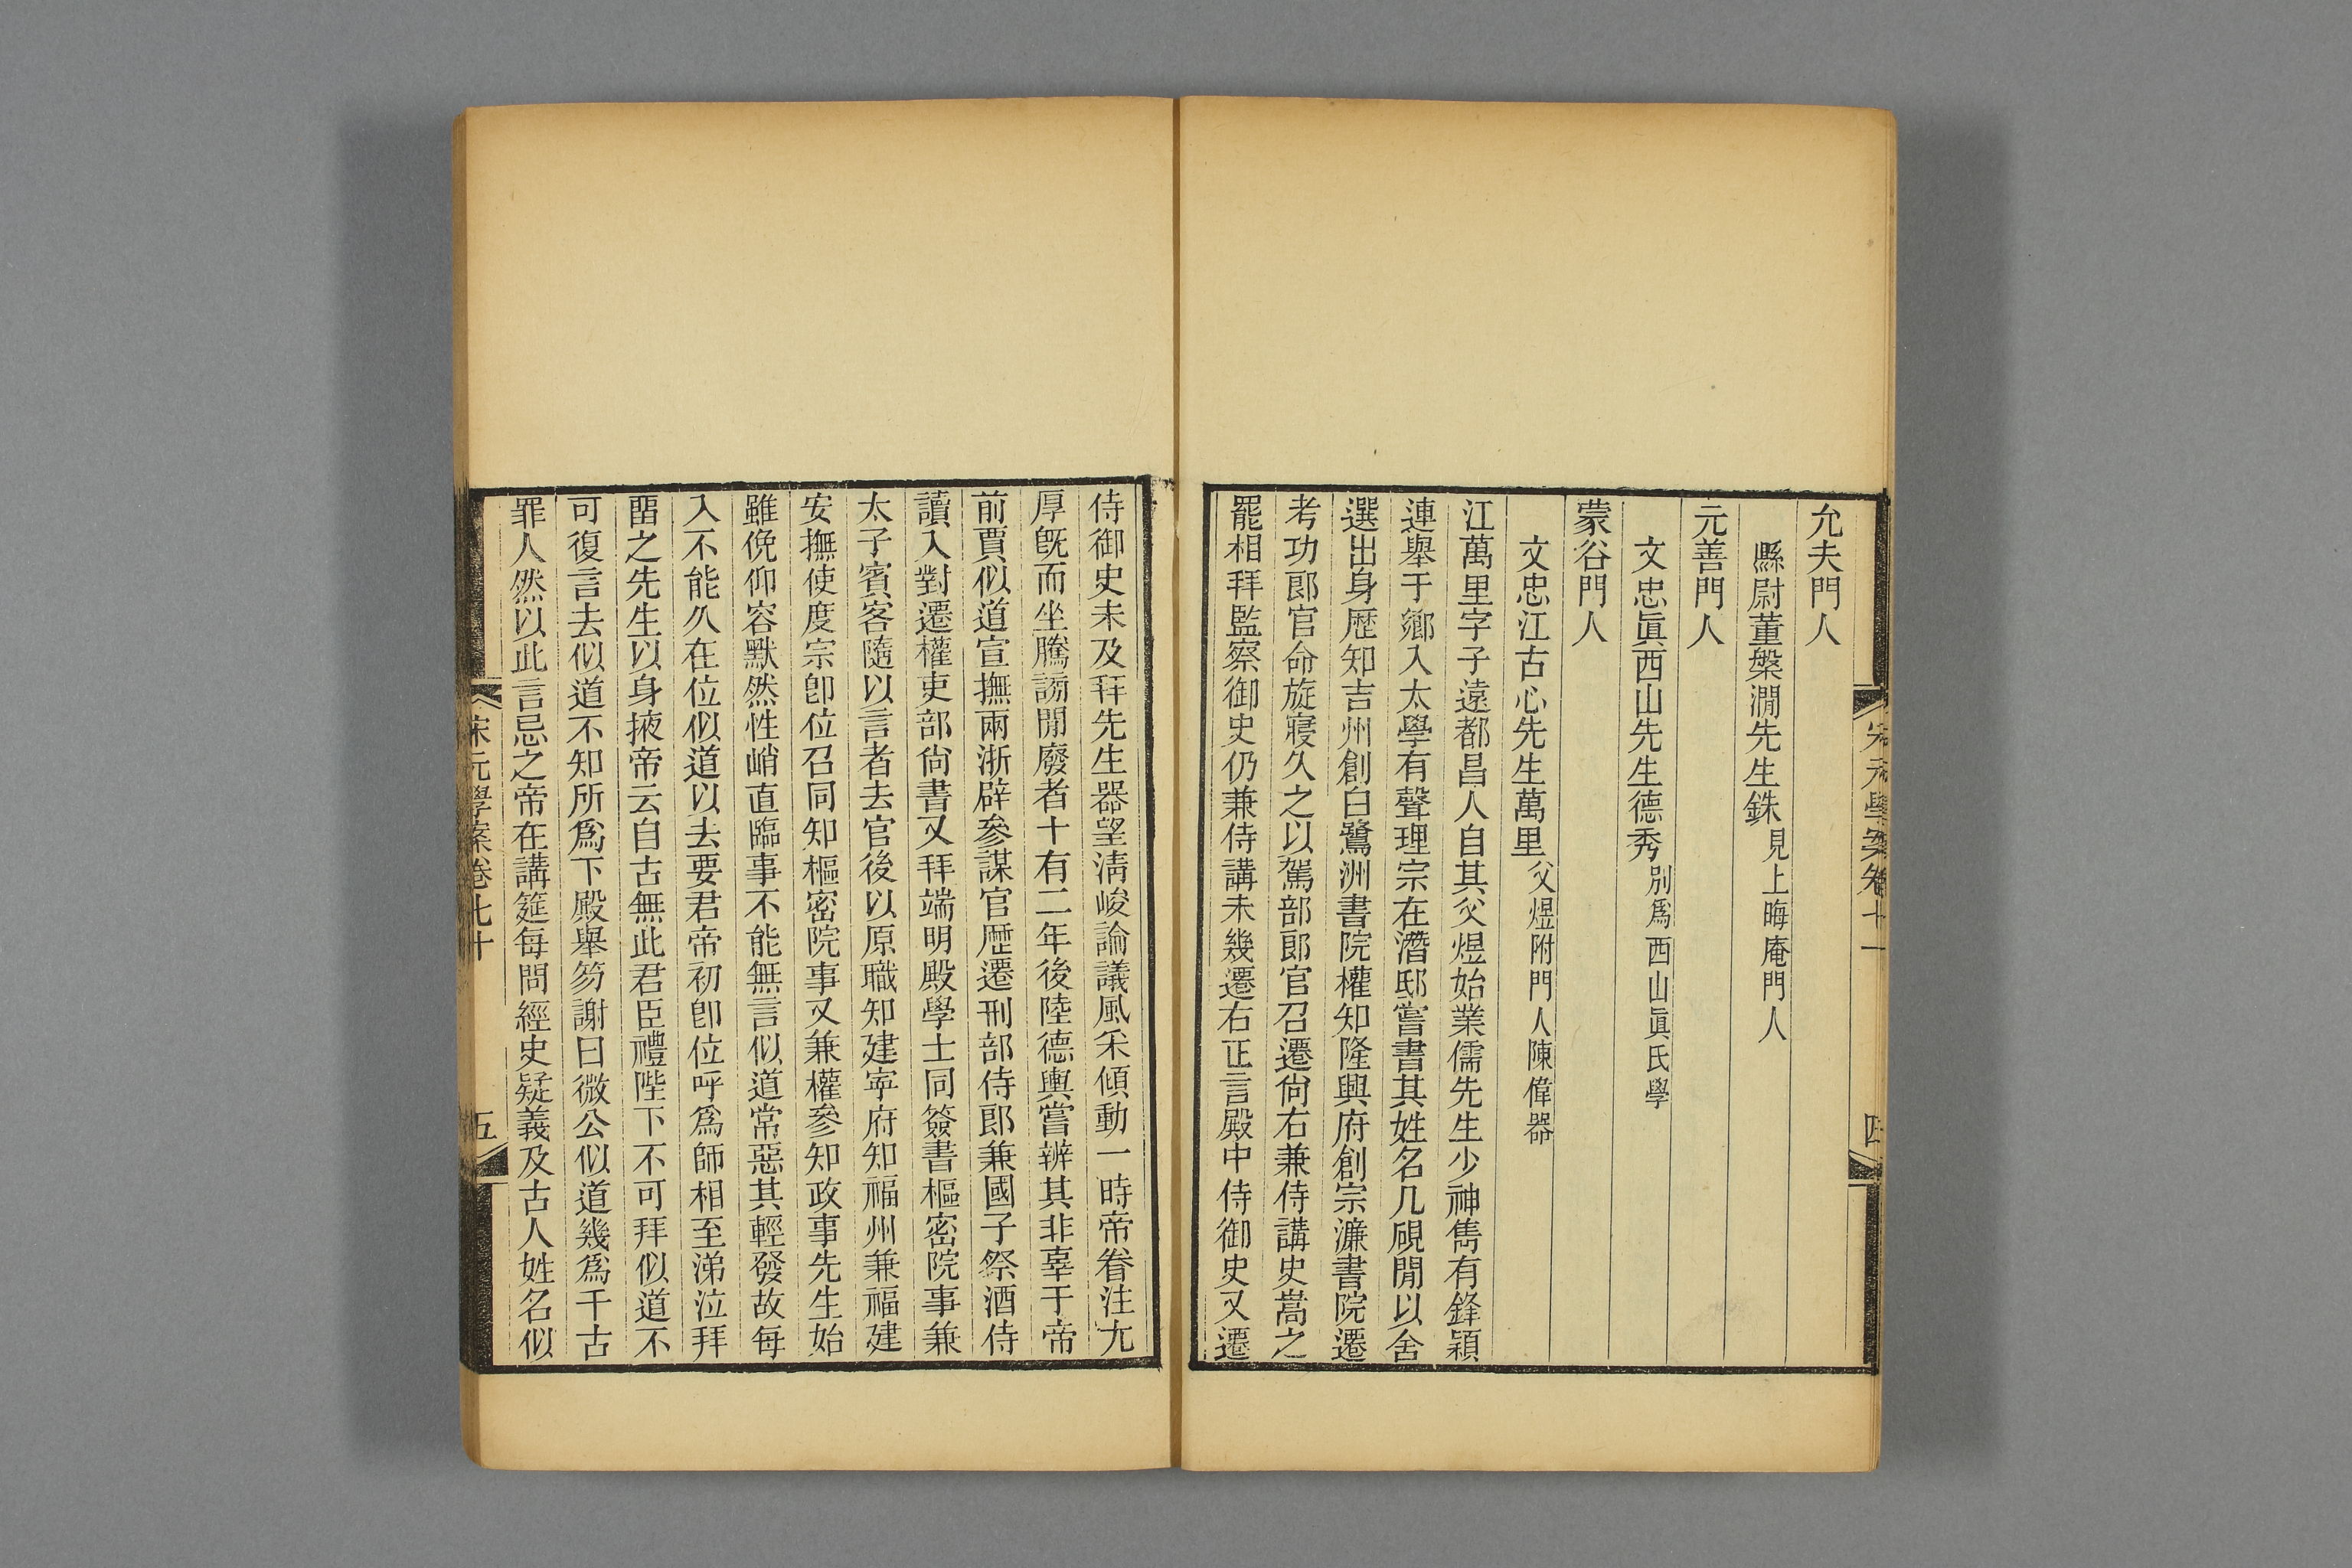 允夫門人
縣尉董槃澗先生銖見上晦庵門人
元善門人
文忠眞西山先生德秀別爲西山眞氏學
蒙谷門人
文忠江古心先生萬里父煜附門人陳偉器
江萬里字子遠都昌人自其父煜始業儒先生少神雋有鋒穎
連舉于鄉入太學有聲理宗在潛邸嘗書其姓名几硯閒以舍
選出身歷知吉州創白鷺洲書院權知隆興府創宗濂書院遷
考功郎官命旋寢久之以駕部郎官召遷尙右兼侍講史嵩之
罷相拜監察御史仍兼侍講未幾遷右正言殿中侍御史又遷
侍御史未及拜先生器望淸峻論議風采傾動一時帝眷注尤
厚旣而坐騰謗閒廢者十有二年後陸德輿嘗辨其非辜于帝
前賈似道宣撫兩浙辟參謀官歷遷刑部侍郎兼國子祭酒侍
讀入對遷權吏部尙書又拜端明殿學士同簽書樞密院事兼
太子賓客隨以言者去官後以原職知建寧府知福州兼福建
安撫使度宗卽位召同知樞密院事又兼權參知政事先生始
雖俛仰容默然性峭直臨事不能無言似道常惡其輕發故每
入不能久在位似道以去要君帝初卽位呼爲師相至涕泣拜
畱之先生以身掖帝云自古無此君臣禮陛下不可拜似道不
可復言去似道不知所爲下殿舉笏謝曰微公似道幾爲千古
罪人然以此言忌之帝在講筵每問經史疑義及古人姓名似
宋元學案卷七十
五